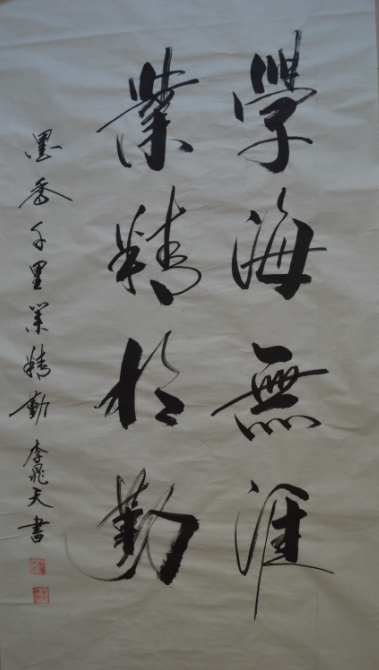 學海無涯
業精於勤
墨香千里業精勤李飛天書